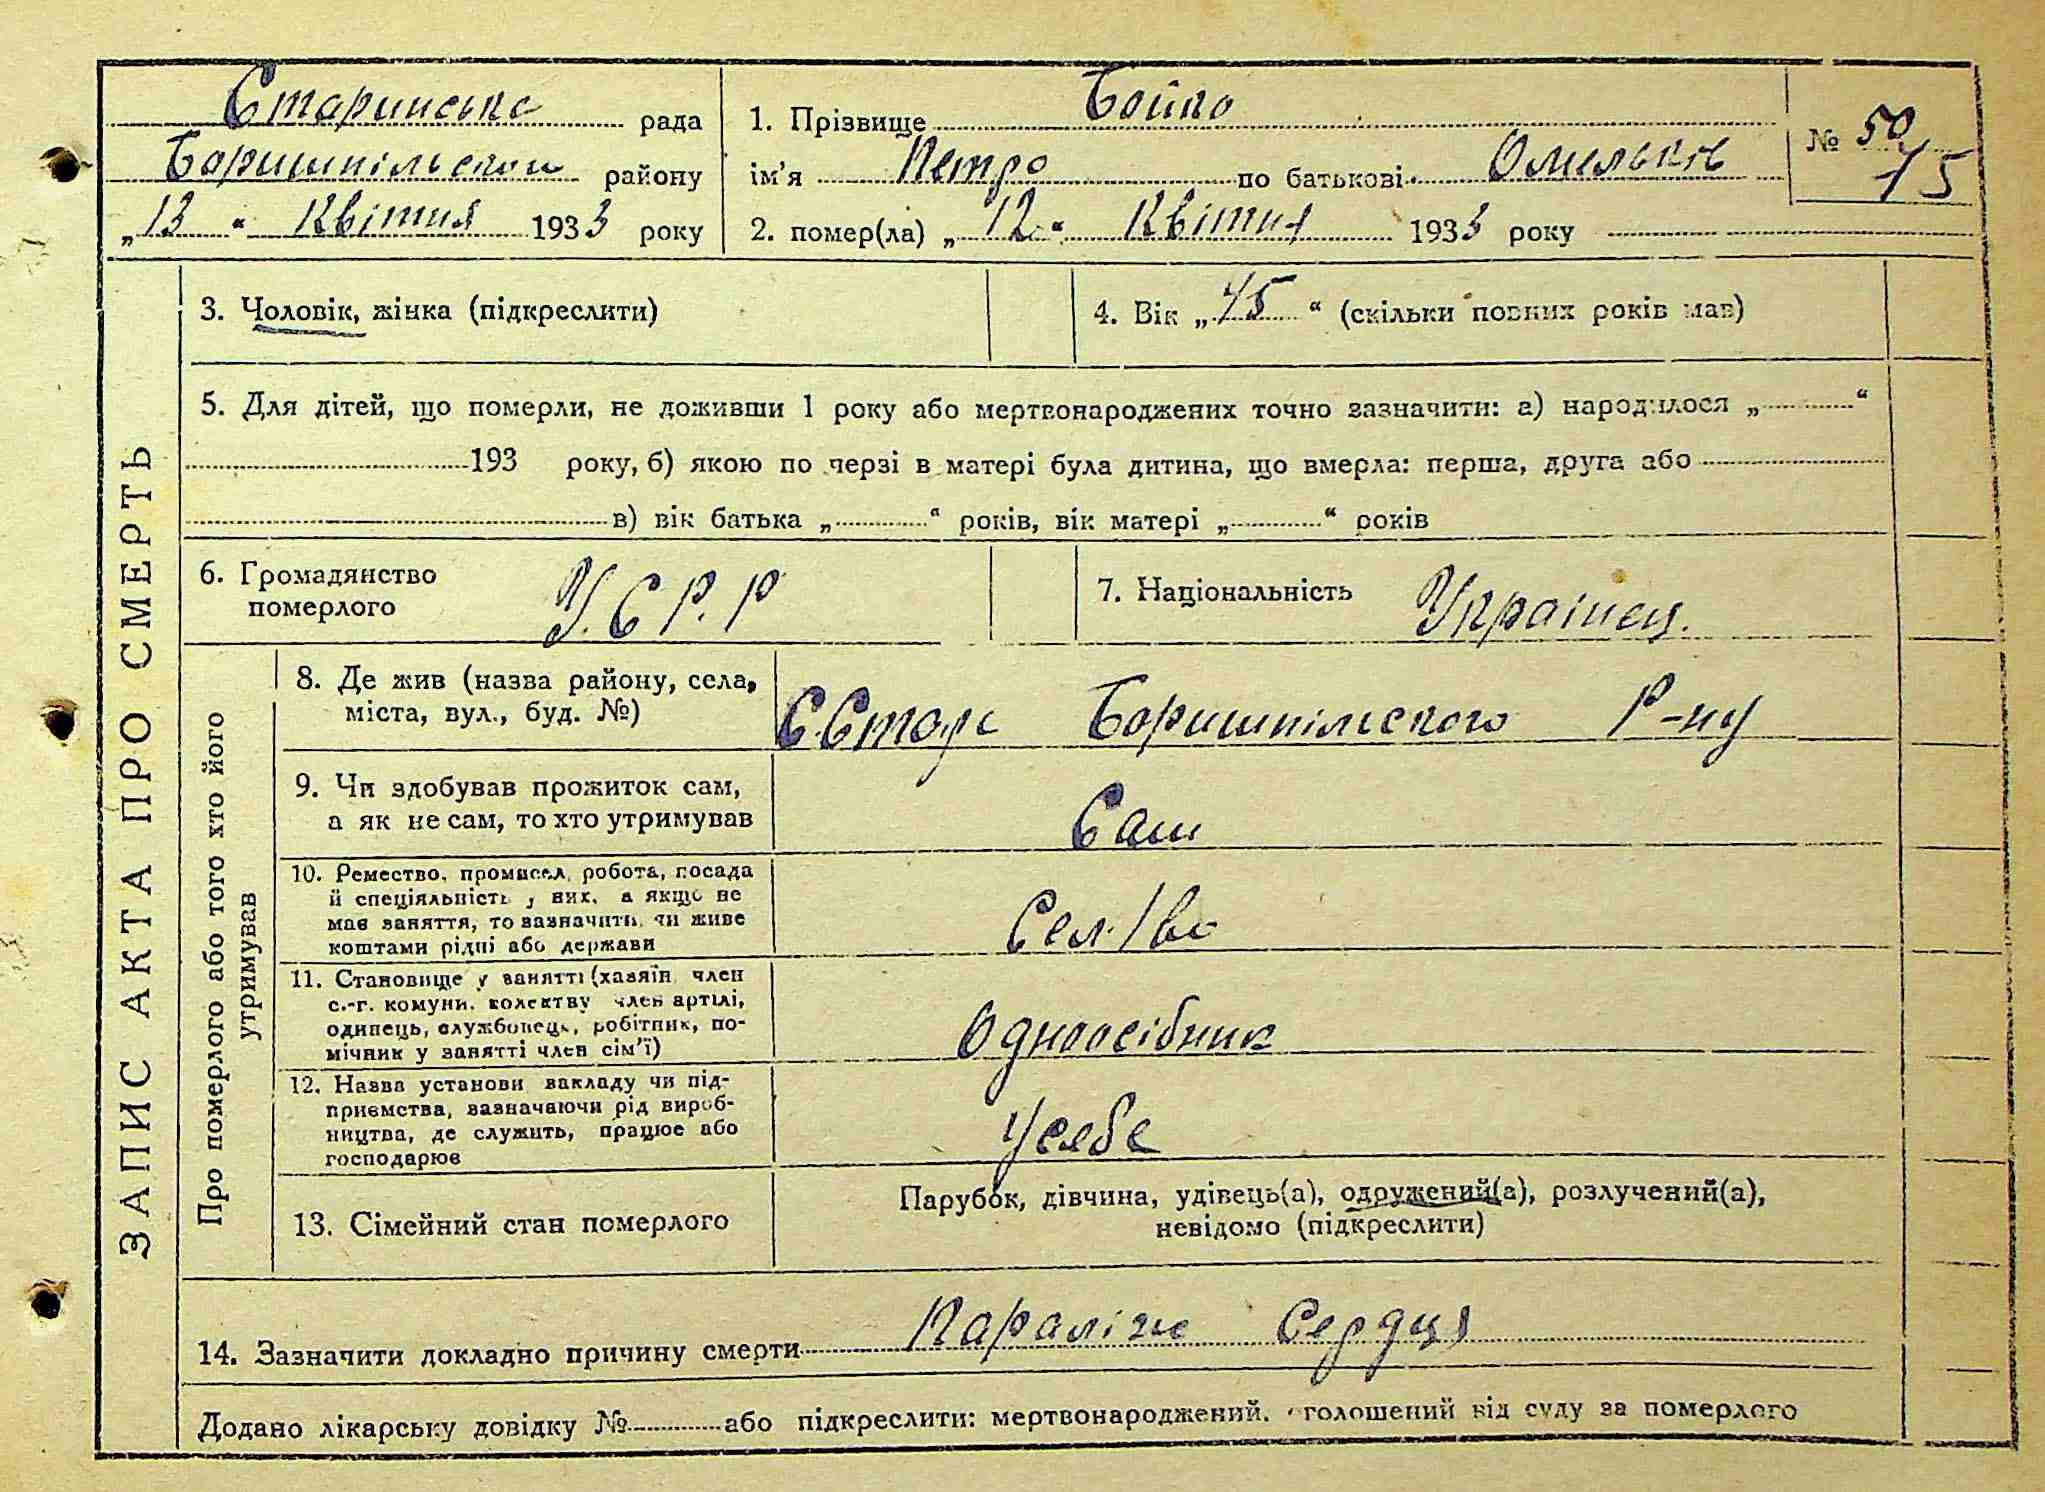 Старинська рада
Боришпільської району
„13“ Квітня 1933 року
1. Прізвище Бойко
ім'я Петро по батькові Омельков
2. помер(ла) „12“ Квітня 1933 року
№ 50
15
ЗАПИС АКТА ПРО СМЕРТЬ
3. Чоловік, жінка (підкреслити)
4. Вік „45“ (скільки повних років мав)
5. Для дітей, що померли, не доживши 1 року або мертвонароджених точно зазначити: а) народилося „ “
193 року, б) якою по черзі в матері була дитина, що вмерла: перша, друга або
в) вік батька „ “ років, вік матері „ “ років
6. Громадянство
померлого
У.С.Р.Р
7. Національність Українец.
Про померлого або того хто його
утримував
8. Де жив (назва району, села,
міста, вул., буд. №)
С.Старе Боришпільского Р-ну
9. Чи здобував прожиток сам,
а як не сам, то хто утримував
Сам
10. Ремество, промисел, робота, посада
й спеціяльність у них, а якщо не
має заняття, то зазначити, чи живе
коштами рідні або держави
Сел./во
11. Становище у занятті (хазяїн, член
с.-г. комуни, колективу член артілі,
одинець, службовець, робітник, по-
мічник у занятті член сім'ї)
Одноосібник
12. Назва установи закладу чи під-
приємства, зазначаючи рід вироб-
ництва, де служить, працює або
господарює
Усебе
13. Сімейний стан померлого
Парубок, дівчина, удівець(а), одружений(а), розлучений(а),
невідомо (підкреслити)
14. Зазначити докладно причину смерти Параліж Сердця
Додано лікарську довідку № або підкреслити: мертвонароджений, оголошений від суду за померлого